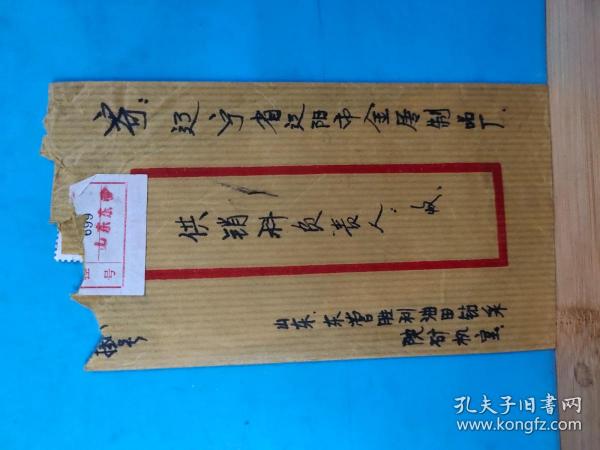 寄：辽宁省辽阳市金属制品厂.
供销科负责人：收、
山东.东营胜利油田钻采
院矿机室.
挂号
699
山东东营
号
孔夫子旧书网
www.kongfz.com